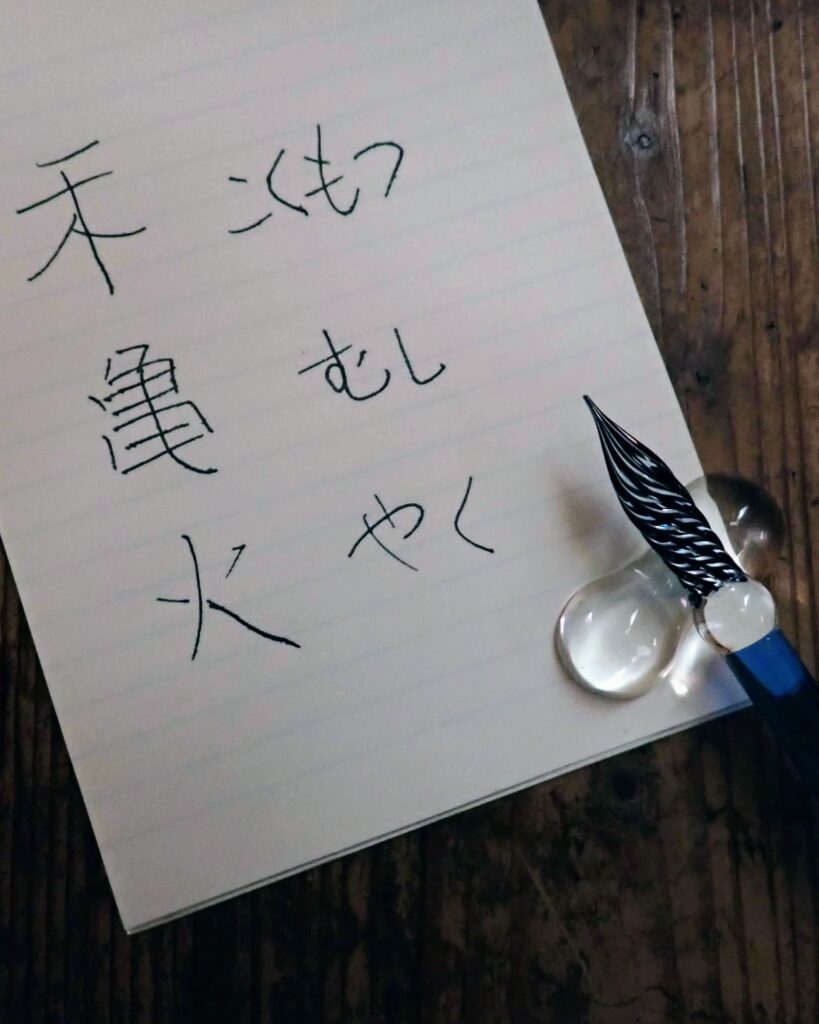 禾 こくもつ
亀 むし
火 やく